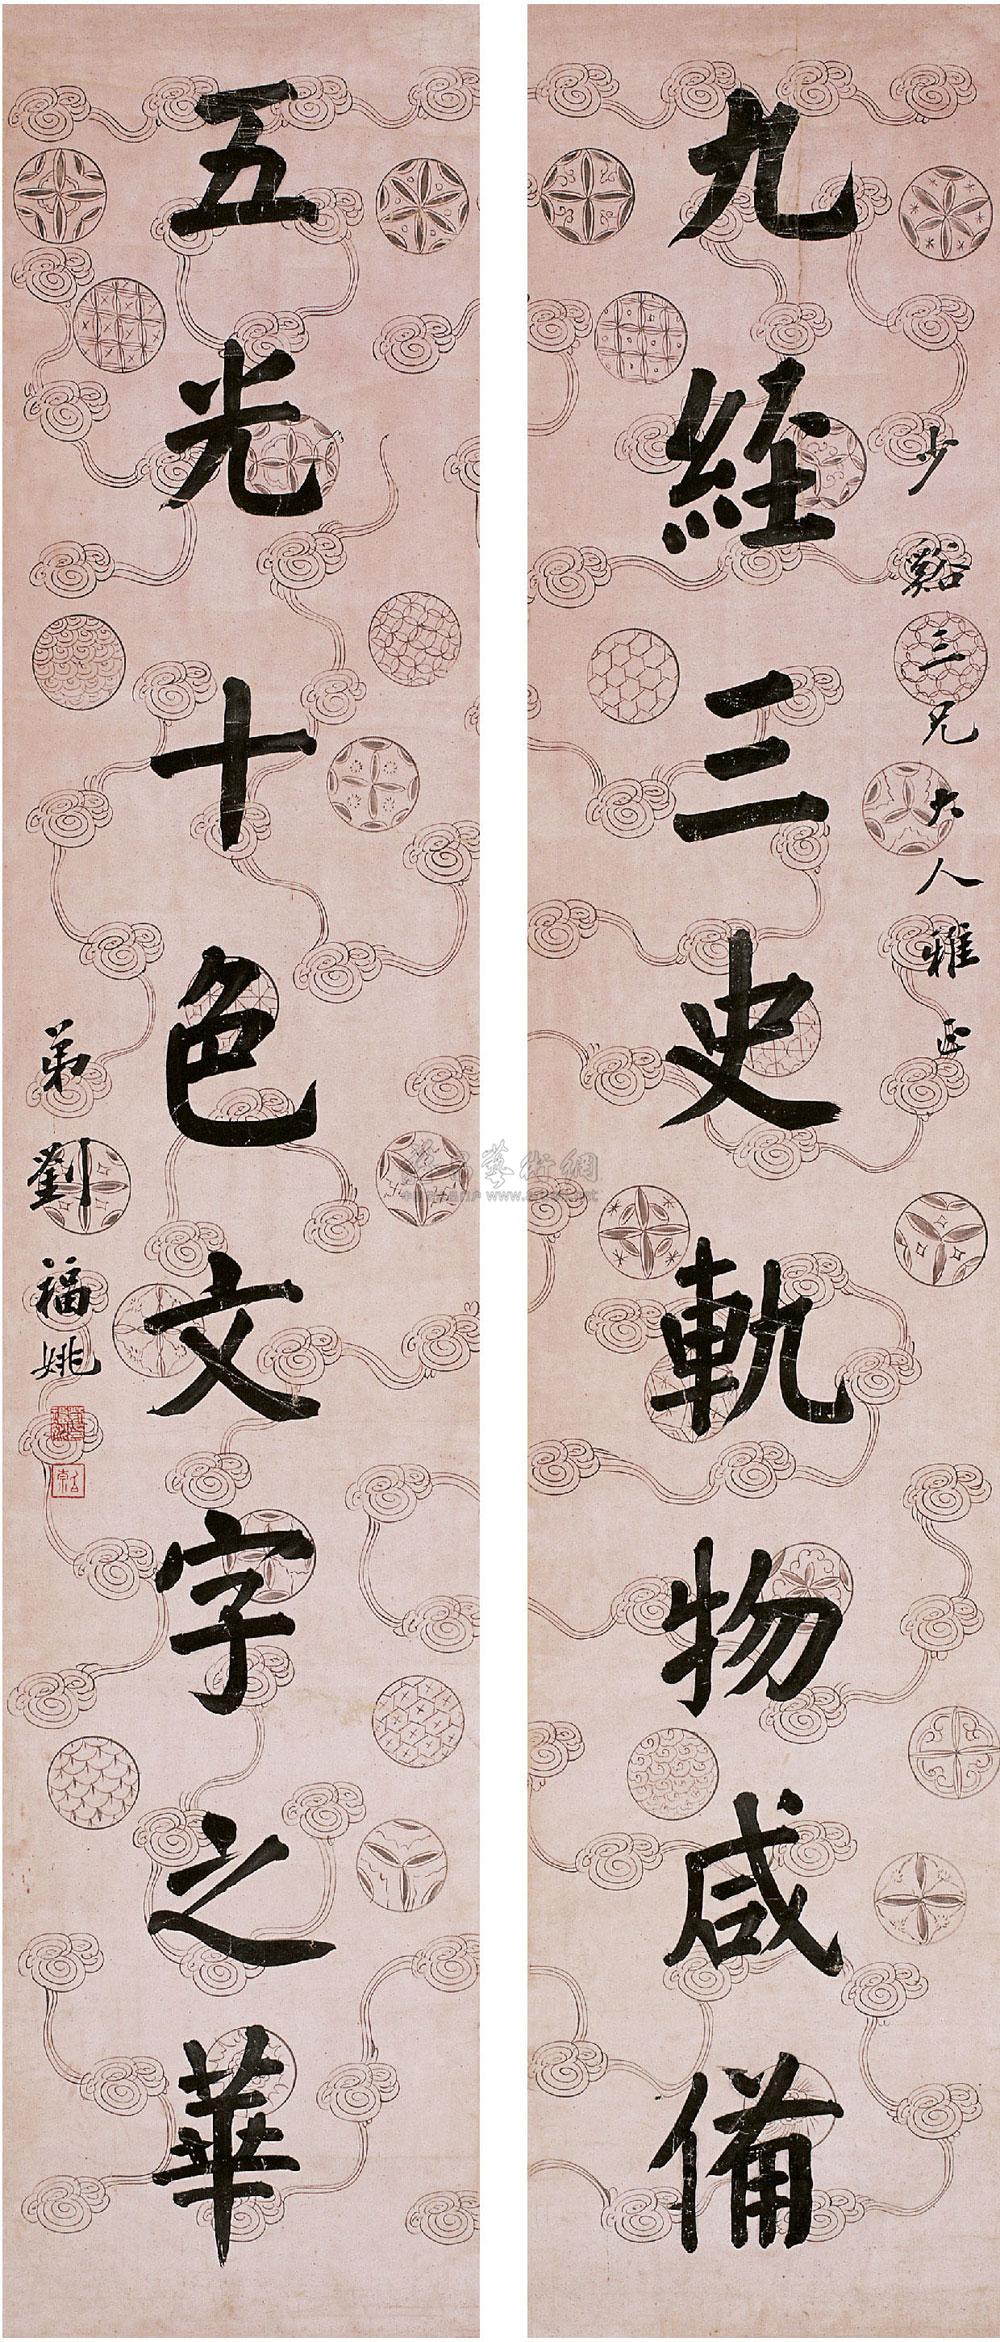 少谿三兄大人雅正
九經三史軌物咸備
五光十色文字之華
弟劉福姚
www.